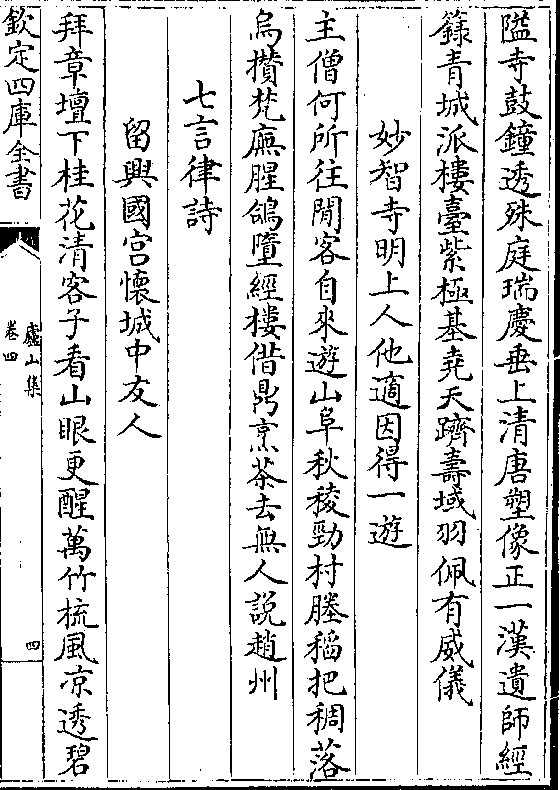 隘寺鼓鐘透殊庭瑞慶垂上清唐塑像正一漢遺師經
籙青城派樓臺紫極基堯天躋壽域羽佩有威儀
妙智寺明上人他適因得一遊
主僧何所往閒客自來遊山阜秋稜勁村塍稻把稠落
烏攅梵廡腥鴿墮經樓借鼎烹茶去無人説趙州
七言律詩
留興國宫懷城中友人
拜章壇下桂花清客子看山眼更醒萬竹梳風凉透碧
欽定四庫全書
廬山集
卷四
四